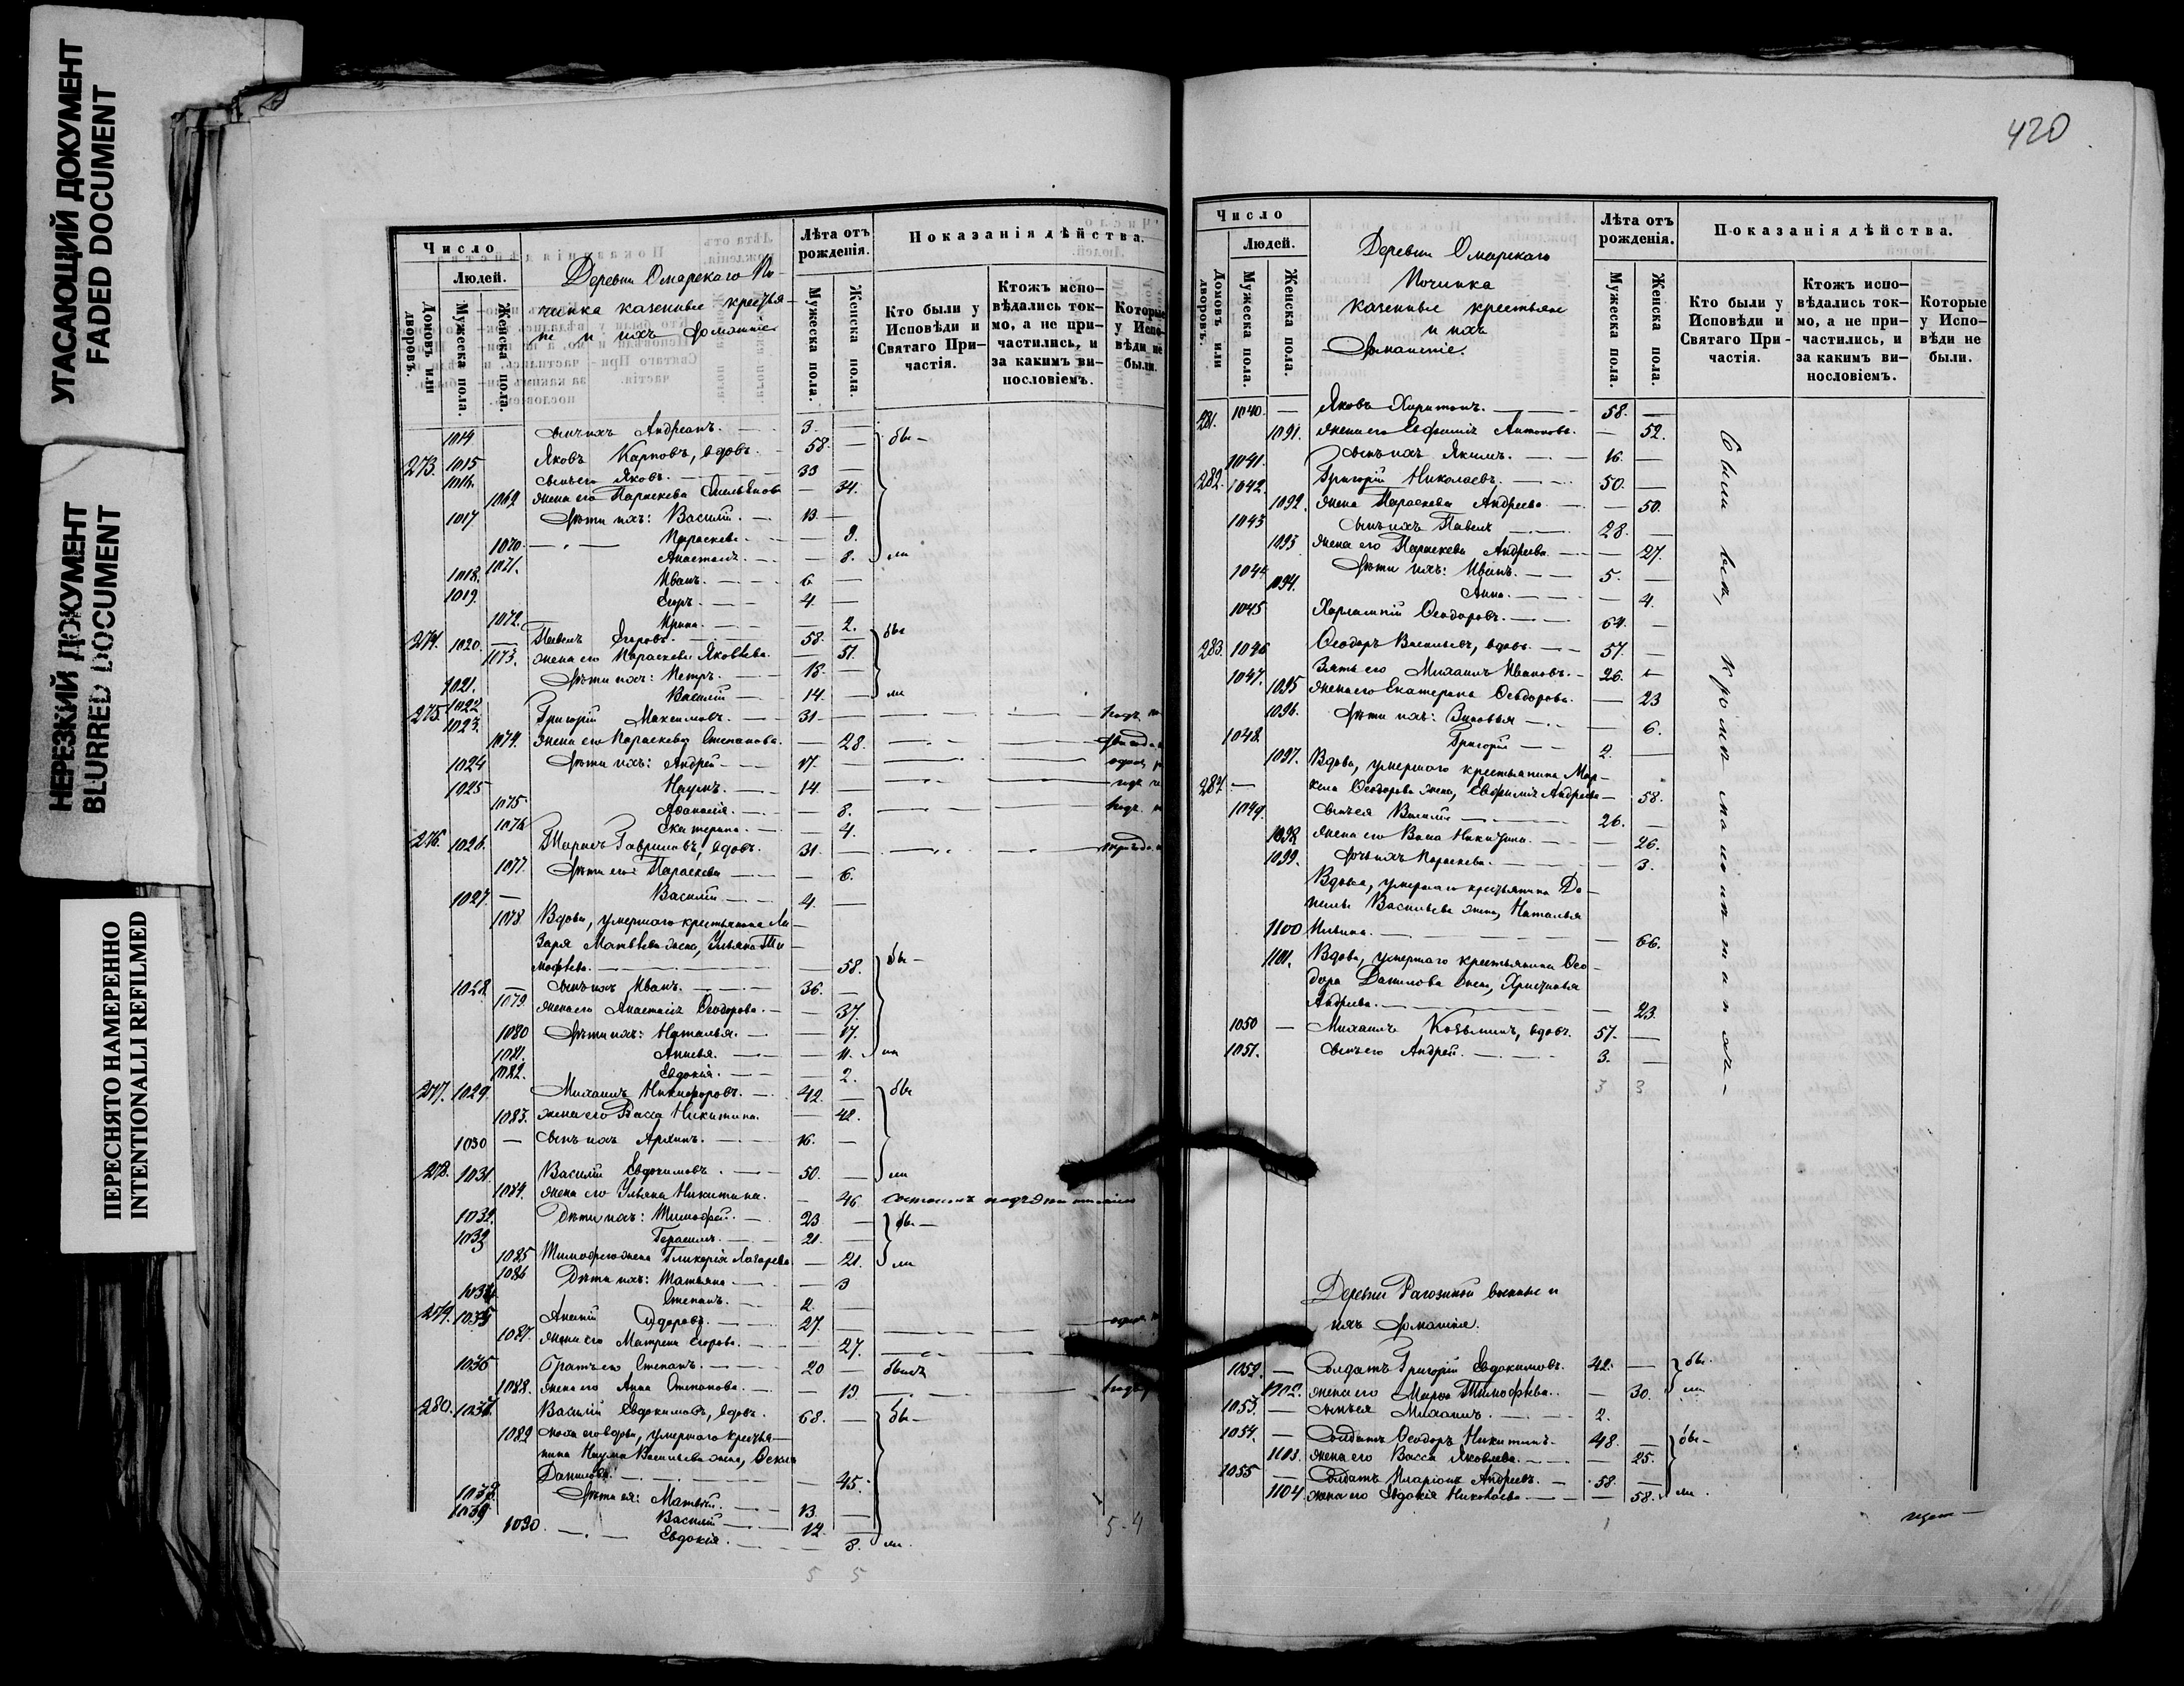 УГАСАЮЩИЙ ДОКУМЕНТ
FADED DOCUMENT
НЕРЕЗКИЙ ДОКУМЕНТ
BLURRED DOCUMENT
ПЕРЕСНЯТО НАМЕРЕННО
INTENTIONALLI REFILMED
Число
Людей.
Домовъ или дворовъ.
Мужеска пола.
Женска пола.
Деревни Омарскаго По-
чинка казенные крестья-
не и ихъ домашніе
Лѣта отъ рожденія.
Мужеска пола.
Женска пола.
Показанія дѣйства.
Кто были у Исповѣди и Святаго Причастія.
Ктожъ исповѣдались токмо, а не причастились, и за какимъ винословіемъ.
Которые у Исповѣди не были.
1014. сынъ ихъ Андреанъ. 3. — бы-
273. 1015 Яковъ Карповъ, вдовъ. 58. —
1016. сынъ его Яковъ. 33 —
1069 жена его Параскева Емельянова — 34.
1017 Дѣти ихъ: Василій. 13. —
1070. Параскева. — 9.
1071. Анастасія. — 8. ли
1018. Иванъ. 6 —
1019. Егоръ. 4. —
1072. Ирина. — 2.
274. 1020. Павелъ Егоровъ. 58. — бы
1073. жена его Параскева Яковлева. — 51.
1021. Дѣти ихъ: Петръ. 18. —
1022 Василій 14. — ли
275. 1023. Григорій Максимовъ. 31. —
1074. жена его Параскева Степанова. — 28.
1024 Дѣти ихъ: Андрей 17. —
1025 Наумъ. 14 —
1075. Афанасія. — 8.
1076 Екатерина. — 4.
276. 1026. Гавриловъ, вдовъ. 31. —
1077. Дѣти его: Параскева — 6.
1027. — Василій 4. —
1078. Вдова, умершаго крестьянина Ла-
заря Матвѣева жена, Ульяна Ти-
мофѣева. — 58. бы-
1028. — сынъ ихъ Иванъ. 36. —
1079. жена его Анастасія Ѳеодорова. — 37.
1080 Дѣти ихъ: Наталья. — 17.
1081. Анисья. — 11. ли
1082. Евдокія. — 2.
277. 1029. Михаилъ Никифоровъ. 42. — бы
1083. жена его Васса Никитина. — 42.
1030 — сынъ ихъ Архипъ. 16. —
278. 1031. Василій Евдокимовъ. 50. — ли
1084. жена его Ульяна Никитина. — 46
1032. Дѣти ихъ: Тимофей. 23 — бы-
1033 Герасимъ. 21. —
1085 Тимофея жена Гликерія Лазарева — 21. ли
1086 Дѣти ихъ: Татьяна — 3
1034 Степанъ. 2. —
279. 1035 Ананій Сидоровъ. 27. —
1087. жена его Матрена Егорова. — 27.
1036 Братъ его Степанъ. 20 — былъ
1088. жена его Анна Степанова. — 19
280. 1037. Василій Евдокимовъ, вдовъ. 68. — бы-
1089 сноха его вдова, умершаго крестья-
нина Наума Васильева жена, Ѳекла
Данилова. — 45.
1038. Дѣти ея: Матвѣй. 13. —
1039. Василій 12. —
1090. Евдокія. — 8. ли.
5 5
5-4
420
Число
Людей.
Домовъ или дворовъ.
Мужеска пола.
Женска пола.
Деревни Омарскаго
Починка
казенные крестьяне
и ихъ
домашніе.
Лѣта отъ рожденія.
Мужеска пола.
Женска пола.
Показанія дѣйства.
Кто были у Исповѣди и Святаго Причастія.
Ктожъ исповѣдались токмо, а не причастились, и за какимъ винословіемъ.
Которые у Исповѣди не были.
281. 1040. — Яковъ Харитонъ. 58. —
1091. жена его Евфимія Антонова. — 52.
1041. сынъ ихъ Якимъ. 16. —
282. 1042. Григорій Николаевъ. 50. —
1092. жена Параскева Андреева — 50.
1043 сынъ ихъ Павелъ 28. —
1093 жена его Параскева Андреева. — 27.
1044 Дѣти ихъ: Иванъ. 5. —
1094. Анна. — 4.
1045 Харлампій Ѳеодоровъ. 64. —
283. 1046 Ѳеодоръ Васильевъ, вдовъ. 57. —
1047. Зять его Михаилъ Ивановъ. 26. —
1095 жена его Екатерина Ѳеодорова. — 23
1096. Дѣти ихъ: Зиновья — 6.
1048 Григорій 2. —
1097. Вдова, умершаго крестьянина Мар-
284. — кела Ѳеодорова жена, Евфимія Андреева — 58.
1049. сынъ ея Василій 26. —
1098 жена его Васса Никитина. — 26.
1099. Дочь ихъ Параскева. — 3.
Вдова, умершаго крестьянина Да-
нилы Васильева жена, Наталья
1100 Ильина. — 66.
1101. Вдова, умершаго крестьянина Ѳео-
дора Данилова жена, Христинья
Андреева. — 23.
1050 — Михаилъ Козьминъ, вдовъ. 57. —
1051. сынъ его Андрей. 3. —
3 3
были всѣ, кромѣ малолѣтнихъ
Деревни Рагозиной военные и
ихъ домашніе.
1052. — Солдатъ Григорій Евдокимовъ. 42. — бы-
1102. жена его Марѳа Тимофѣева. — 30. ли
1053. — сынъ ея Михаилъ. 2.
1054. — Солдатъ Ѳеодоръ Никитинъ. 48. — бы-
1103. жена его Васса Яковлева. — 25.
1055 — Солдатъ Иларіонъ Андреевъ. 58. —
1104. жена его Евдокія Николаева — 58. ли.